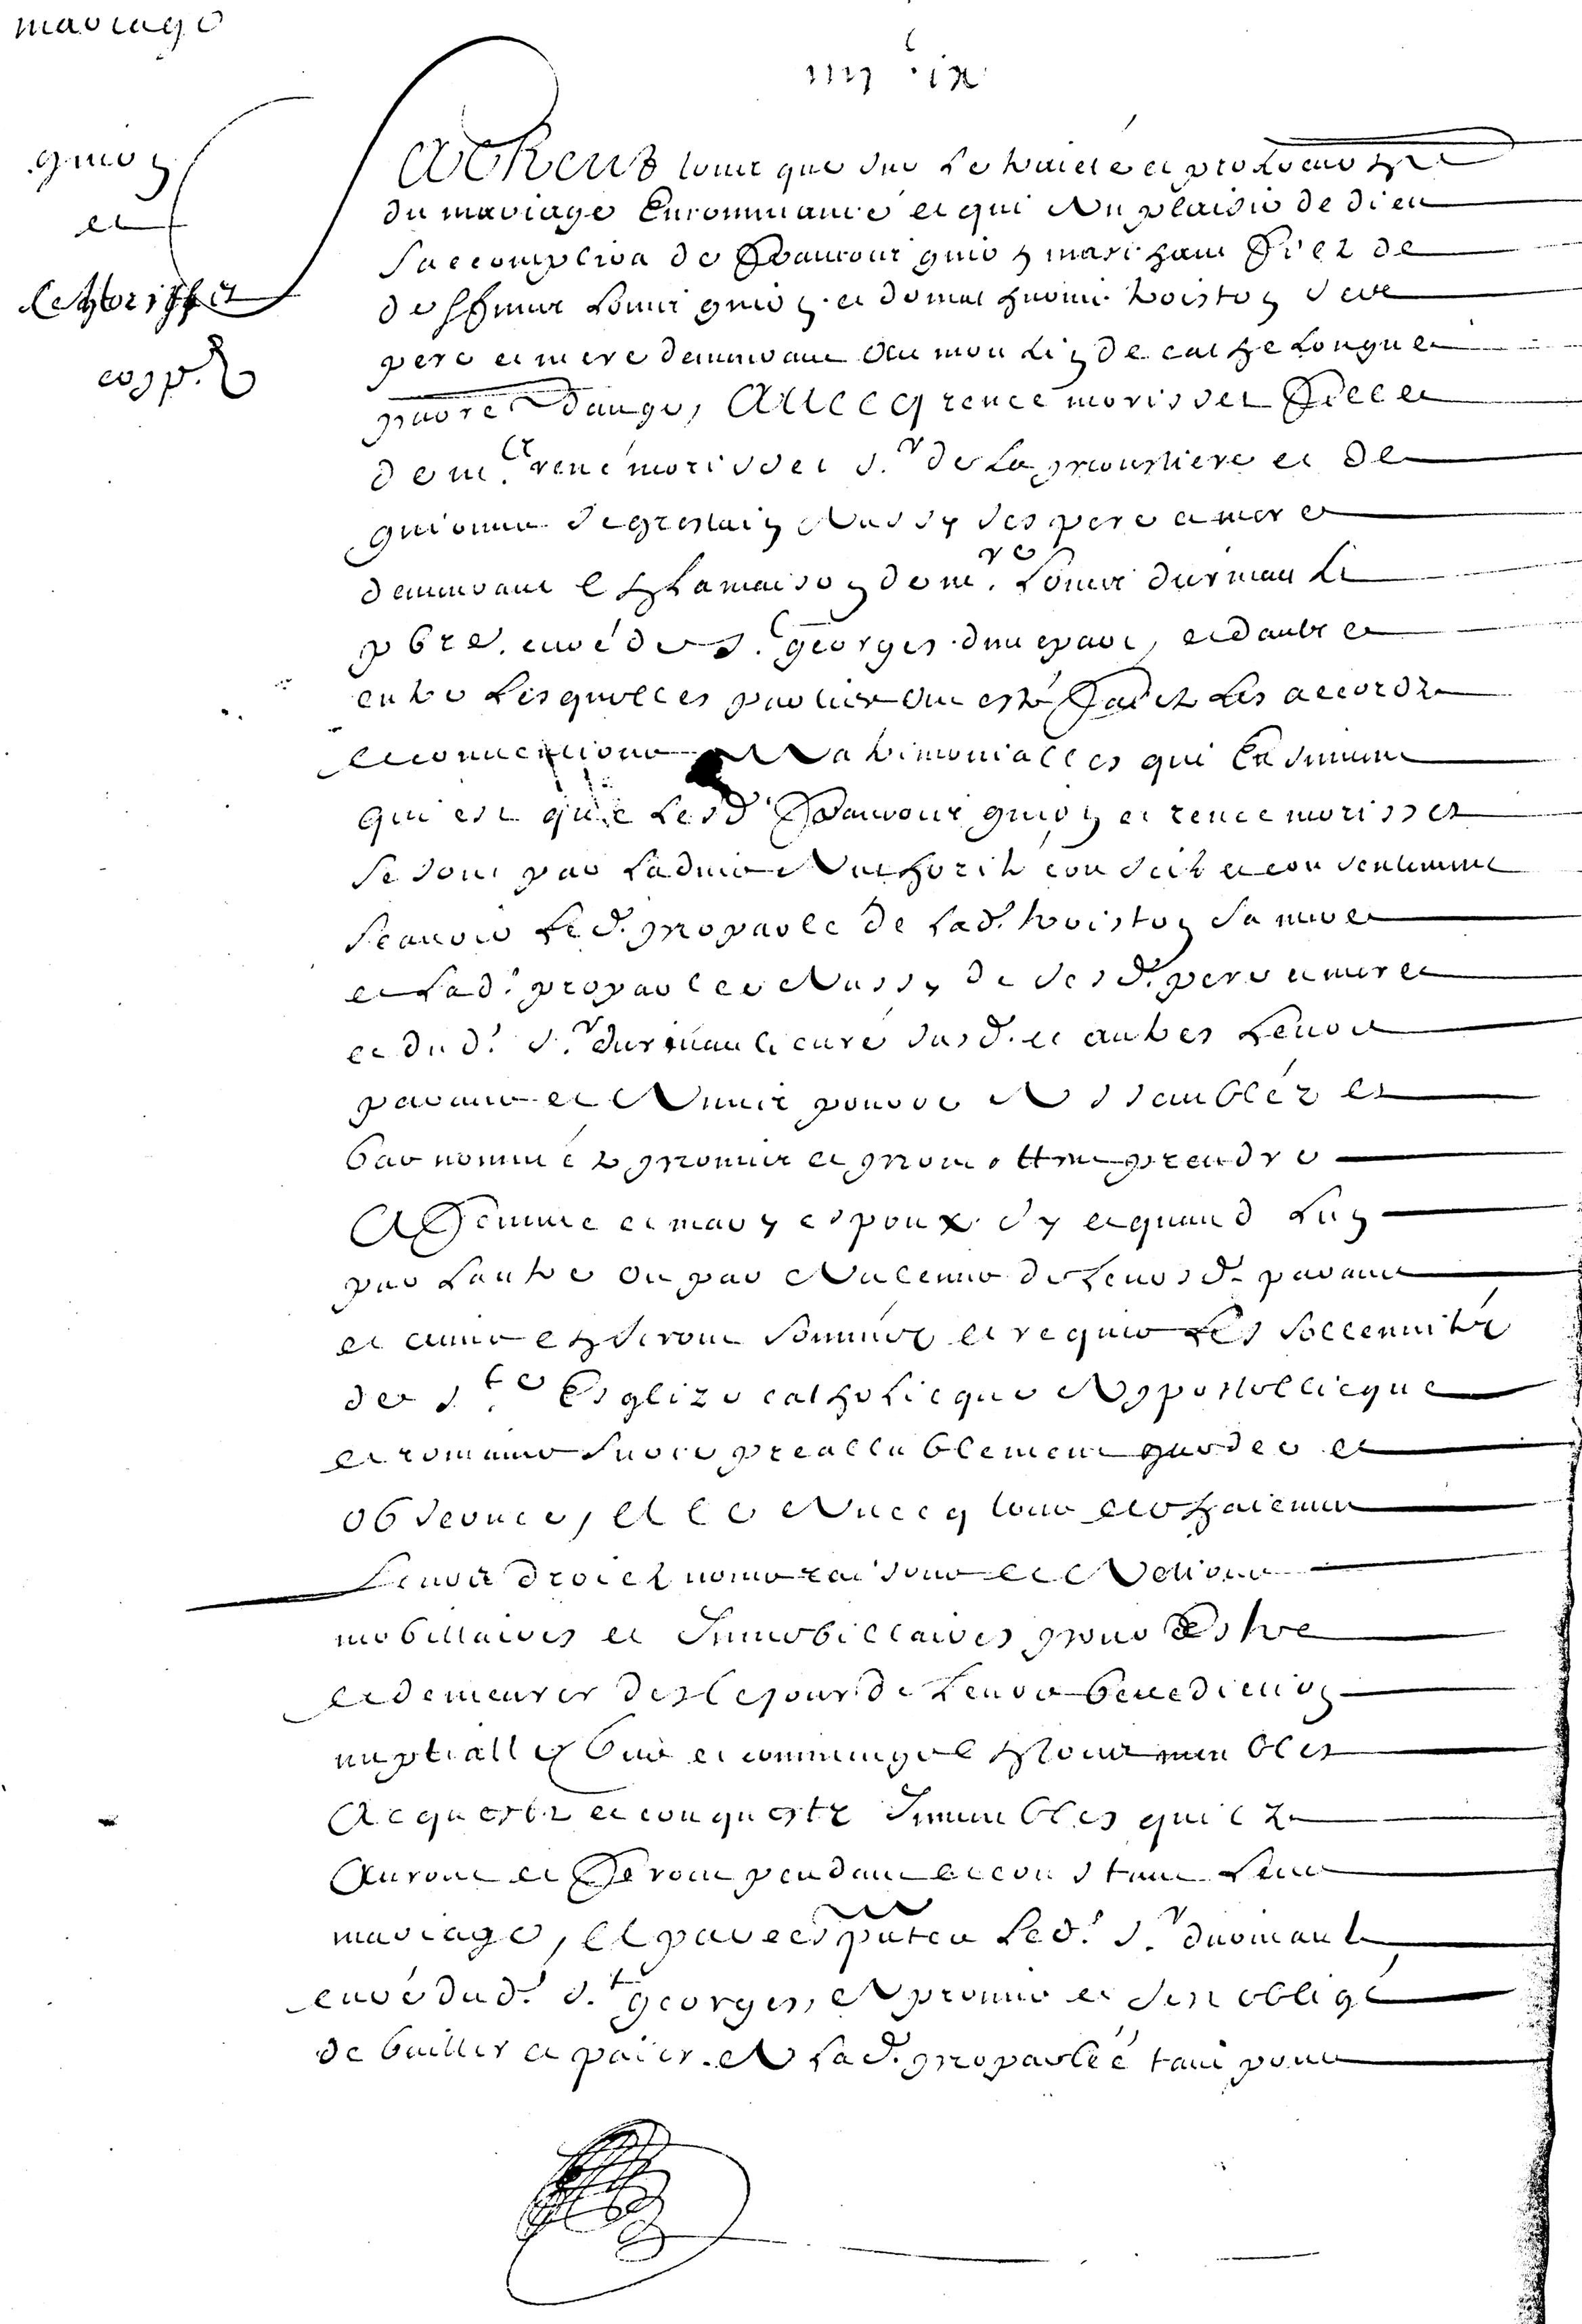 mariage
guion
et
Le Morisset
coppié
Sachent tous que sur le traicté et prolocution
du mariage encommancé et qui au plaisir de dieu
saccomplira de Francois guion marchant filz de
deffunct Louis guion et de Toiston ses
pere et mere demeurant au moulin de
Avecq renee morisset fille
de me. rené morisset sr. de la et de
aussy ses pere et mere
demeurant en la maison de me. Louis durmault
pbre. curé de s. georges dune part, et daultre
entre lesquelles parties ont esté faictz les accordz
et conventions Matrimonialles qui ensuivent
qui est que lesd. Francois guion et renee morisset
se sont par ladvis Authorité conseil et consentement
scavoir led. proparlé de lad. Toiston sa mere
et lad. proparlee Aussy de sesd. pere et mere
et dud. sr. durmault curé susd. et aultres leurs
parans et Amis pour ce Assamblez et
bas nommez promis et promettent prendre
A femme et mary espoux sy et quand lun
par laultre ou par Aulcuns de leursd. parans
et amis en seront sommez et requis les sollemnitez
de ste. Esglize catholicque Appostollicque
et romaine sur ce preallablement gardees et
observees, et ce Avecq tous et chacuns
leurs droictz noms raisons et Actions
mobillaires et Immobillaires pour Estre
et demeurer des le jour de leur benediction
nuptialle Uns et communs en tous meubles
Acquestz et conquestz Immeubles quilz
Auront et Feront pendant et constant leur
mariage, et par ces pntes led. sr. durmault
curé dud. st. georges, A promis et sest obligé
de bailler et paier A lad. proparlée tant pour